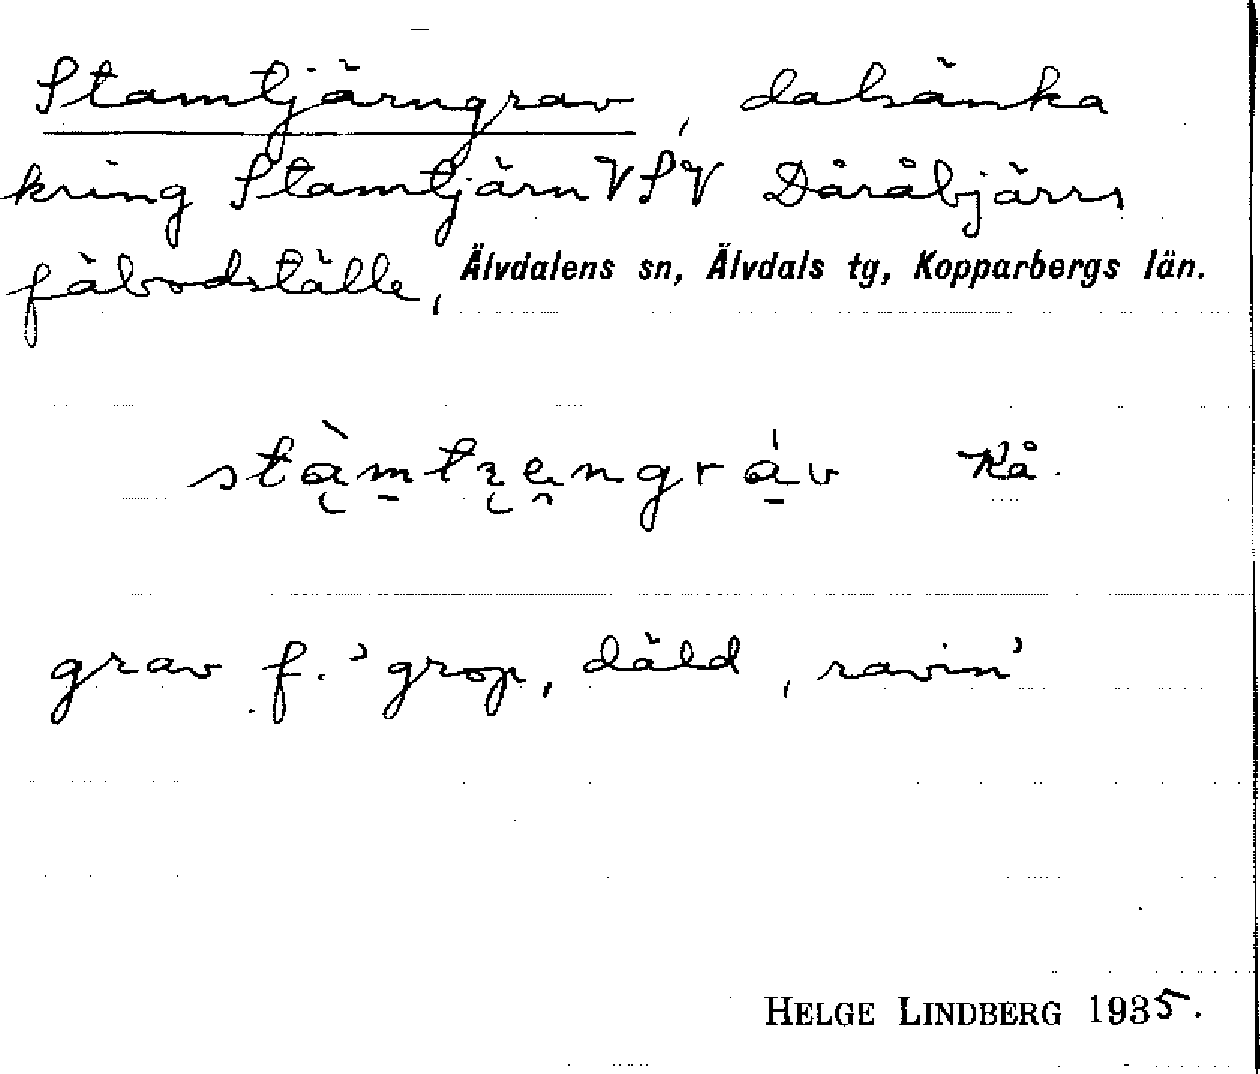 Stamtjärngrav, dalsänka
kring Stamtjärn VSV Dåråbjärrs
fäbodställe, Älvdalens sn, Älvdals tg, Kopparbergs län.
Kå.
grav f. 'grop, däld, ravin'
HELGE LINDBERG 1935.